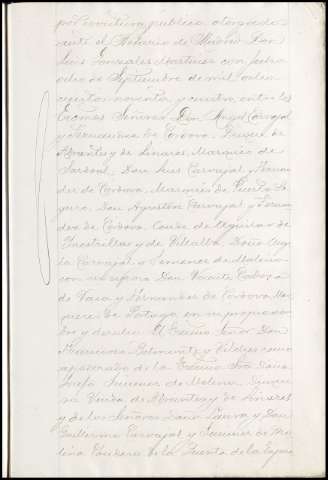 por escritura publica otorgada
ante el Notario de Madrid Don
Luis Gonzalez Martinez con fecha
ocho de Septiembre de mil ocho
cientos noventa y cuatro, entre los
Excmos Señores Don Angel Carvajal
y Fernandez de Cordova, Duque de
Abrantes y de Linares, Marques de
Sardoal, Don Luis Carvajal y Fernan
dez de Cordova, Marques de Puerto Se
guro, Don Agustin Carvajal y Fernan
dez de Cordova Conde de Aguilar de
Inestrillas y de Villalba, Doña Ange
la Carvajal y Jimenez de Molina
con su esposo Don Vicente Cabeza
de Vaca y Fernandez de Cordova Mar
queses de Portago en su propio nom
bre y derecho. El Excmo Señor Don
Francisco Belmonte y Vilches como
apoderado de la Excma Sra Doña
Josefa Jimenez de Molina, Duque
sa Viuda de Abrantes y de Linares
y de los Señores Doña Laura y Don
Guillermo Carvajal y Jimenez de Mo
lina Condesa de la Quinta de la Enjara